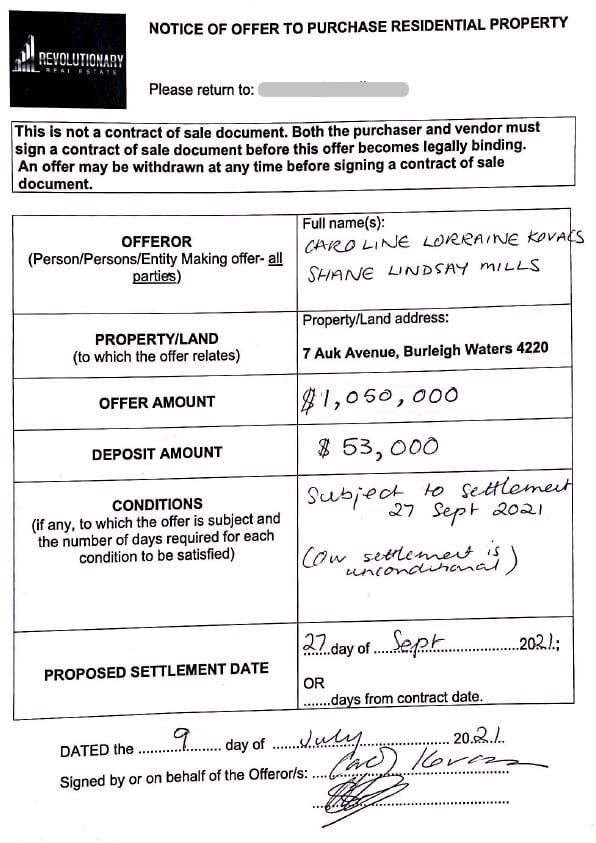 REVOLUTIONARY
REAL ESTATE
NOTICE OF OFFER TO PURCHASE RESIDENTIAL PROPERTY
Please return to:
This is not a contract of sale document. Both the purchaser and vendor must
sign a contract of sale document before this offer becomes legally binding.
An offer may be withdrawn at any time before signing a contract of sale
document.
OFFEROR
(Person/Persons/Entity Making offer- all
parties)
Full name(s):
CAROLINE LORRAINE KOVACS
SHANE LINDSAY MILLS
PROPERTY/LAND
(to which the offer relates)
Property/Land address:
7 Auk Avenue, Burleigh Waters 4220
OFFER AMOUNT
$1,050,000
DEPOSIT AMOUNT
$ 53,000
CONDITIONS
(if any, to which the offer is subject and
the number of days required for each
condition to be satisfied)
Subject to settlement
27 Sept 2021
(our settlement is
unconditional)
PROPOSED SETTLEMENT DATE
27 day of Sept 2021.;
OR
.......days from contract date.
DATED the 9 day of July 2021.
Signed by or on behalf of the Offeror/s: Kovacs